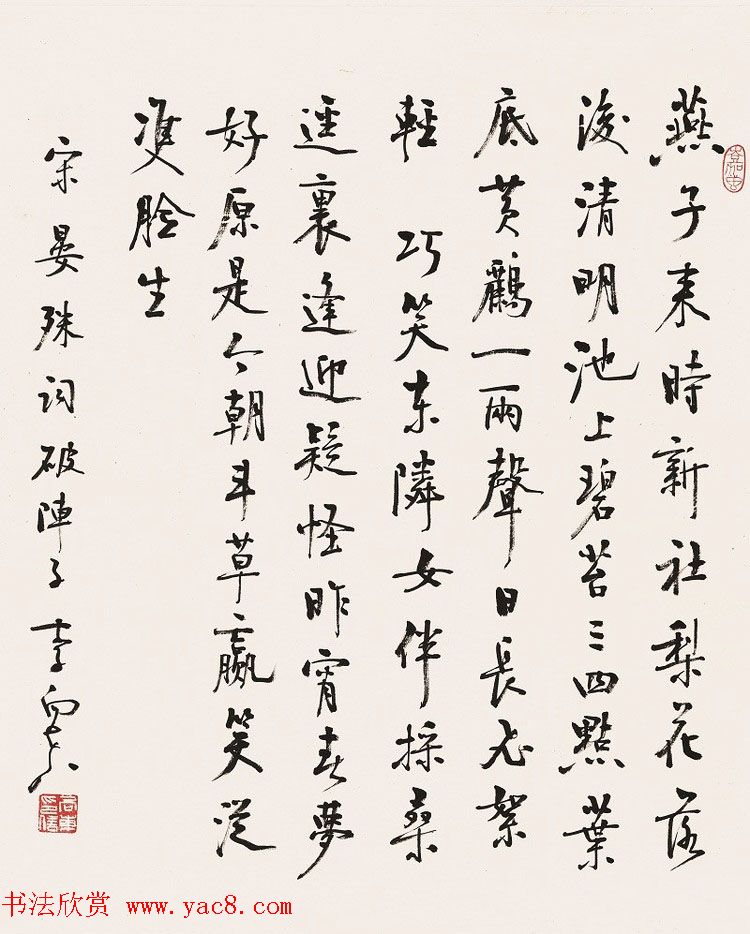 燕子来時新社梨花落
後清明池上碧苔三四點葉
底黄鸝一兩聲日長飛絮
輕 巧笑东隣女伴採桑
逕裏逢迎疑怪昨宵春夢
好原是今朝斗草贏笑從
雙臉生
宋晏殊词破陣子
书法欣赏 www.yac8.com